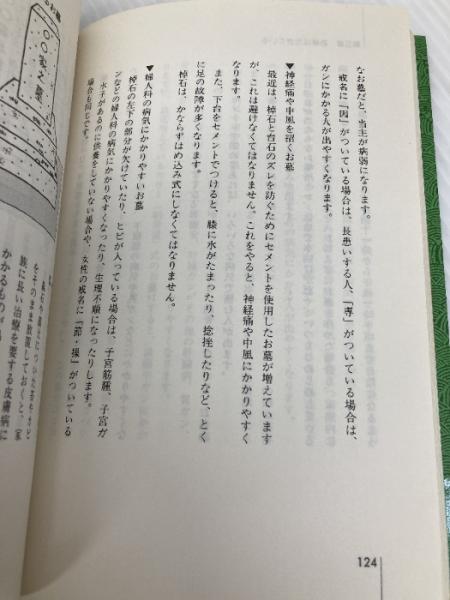 なお墓だと、当主が病弱になります。
戒名に「因」がついている場合は、長患いする人、「専」がついている場合は、
ガンにかかる人が出やすくなります。
▼神経痛や中風を招くお墓
最近は、棹石と台石のズレを防ぐためにセメントを使用したお墓が増えています
が、これは避けなくてはなりません。これをやると、神経痛や中風にかかりやすく
なります。
また、下台をセメントでつけると、膝に水がたまったり、捻挫したりなど、とく
に足の故障が多くなります。
棹石は、かならずはめ込み式にしなくてはなりません。
▼婦人科の病気にかかりやすいお墓
棹石の左下の部分が欠けていたり、ヒビが入っている場合は、子宮筋腫、子宮ガ
ンなどの婦人科の病気にかかりやすくなったり、生理不順になったりします。
水子があるのに供養をしていない場合や、女性の戒名に「節・操」がついている
場合も同じです。
124
〇〇家之墓
をそのまま放置しておくと、家
族に長い治療を要する皮膚病に
かかるもの